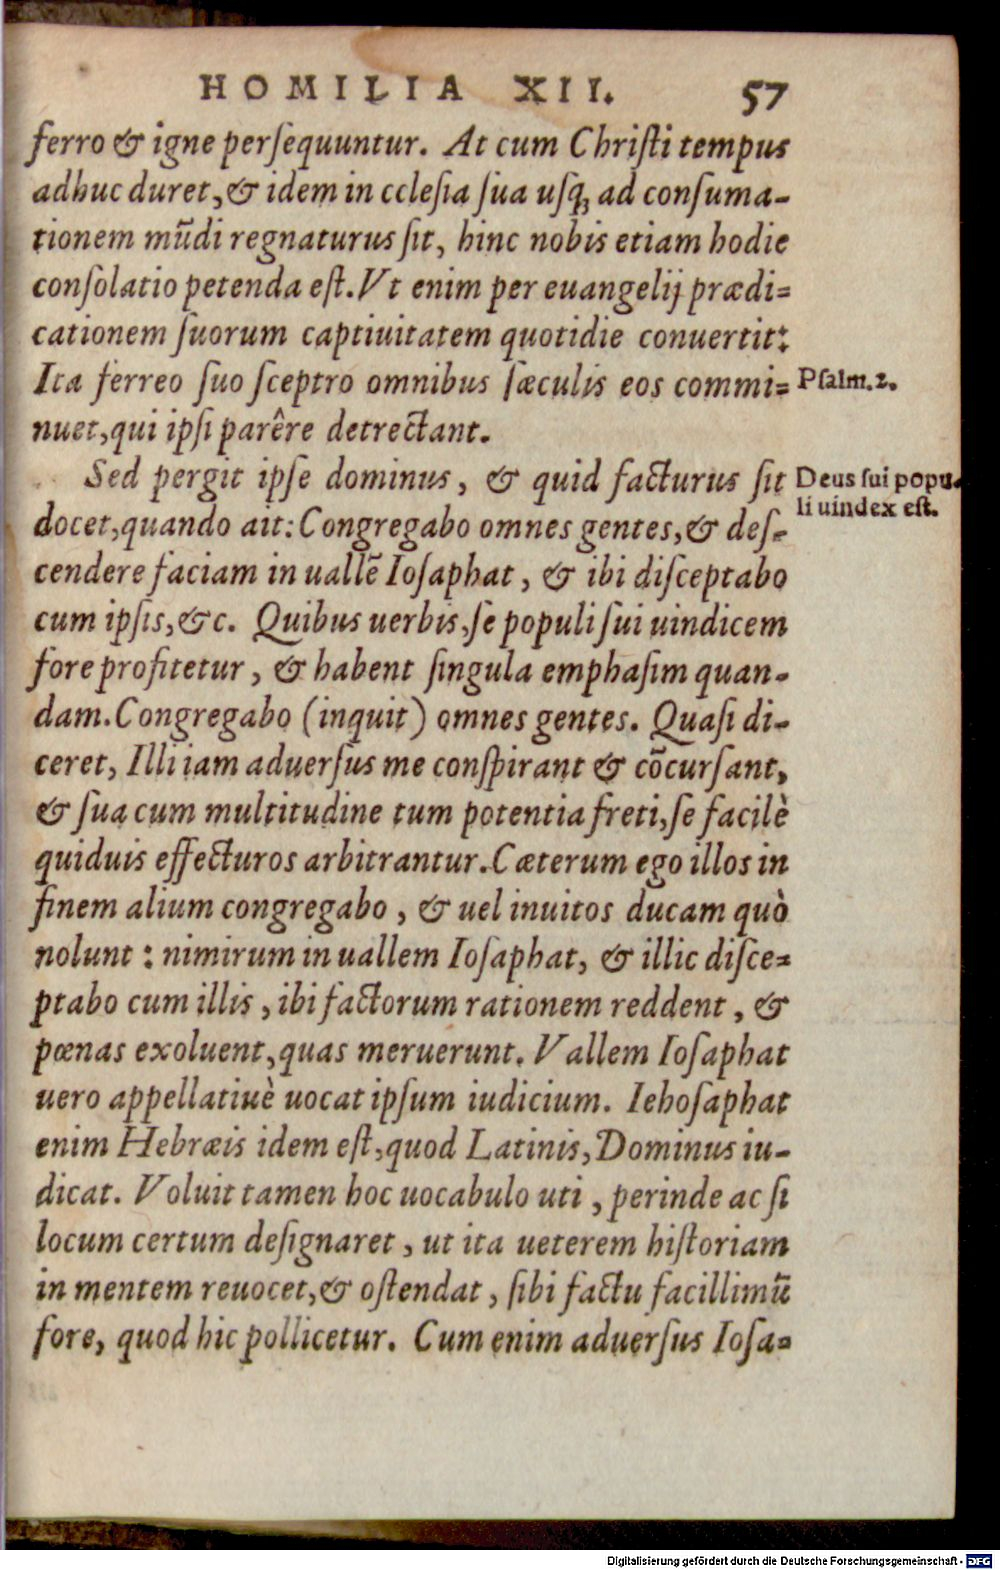 HOMILIA XII. 57
ferro & igne perſequuntur. At cum Chriſti tempus
adhuc duret, & idem in ccleſia ſua uſq; ad conſuma-
tionem mūdi regnaturus ſit, hinc nobis etiam hodie
conſolatio petenda eſt. Vt enim per euangelij prædi=
cationem ſuorum captiuitatem quotidie conuertit:
Ita ferreo ſuo ſceptro omnibus ſæculis eos commi=
Pſalm. 2.
nuet, qui ipſi parêre detrectant.
Sed pergit ipſe dominus, & quid facturus ſit
Deus ſui popu-
docet, quando ait: Congregabo omnes gentes, & deſ-
li uindex eſt.
cendere faciam in uallē Ioſaphat, & ibi diſceptabo
cum ipſis, &c. Quibus uerbis, ſe populi ſui uindicem
fore profitetur, & habent ſingula emphaſim quan-
dam. Congregabo (inquit) omnes gentes. Quaſi di-
ceret, Illi iam aduerſus me conſpirant & cōcurſant,
& ſua cum multitudine tum potentia freti, ſe facilè
quiduis effecturos arbitrantur. Cæterum ego illos in
finem alium congregabo, & uel inuitos ducam quò
nolunt: nimirum in uallem Ioſaphat, & illic diſce=
ptabo cum illis, ibi factorum rationem reddent, &
pœnas exoluent, quas meruerunt. Vallem Ioſaphat
uero appellatiuè uocat ipſum iudicium. Iehoſaphat
enim Hebræis idem eſt, quod Latinis, Dominus iu-
dicat. Voluit tamen hoc uocabulo uti, perinde ac ſi
locum certum deſignaret, ut ita ueterem hiſtoriam
in mentem reuocet, & oſtendat, ſibi factu facillimū
fore, quod hic pollicetur. Cum enim aduerſus Ioſa=
Digitalisierung gefördert durch die Deutsche Forschungsgemeinschaft - DFG